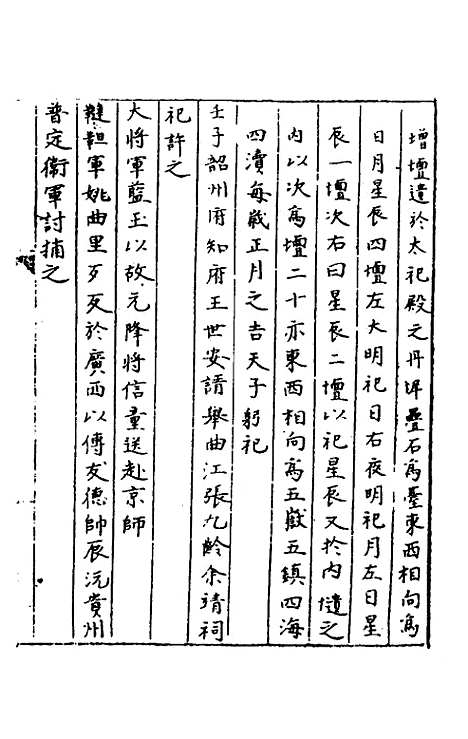 增壇遺於太祀殿之丹墀疊石爲臺東西相向爲
日月星辰四壇左大明祀日右夜明祀月左曰星
辰一壇次右曰星辰二壇以祀星辰又於內壝之
內以次爲壇二十亦東西相向爲五嶽五鎮四海
四瀆每歲正月之吉天子躬祀
壬子韶州府知府王世安請舉曲江張九齡余靖祠
祀許之
大將軍藍玉以故元降將信童送赴京師
韃靼軍姚曲里歹反於廣西以傅友德帥辰沅貴州
普定衛軍討捕之